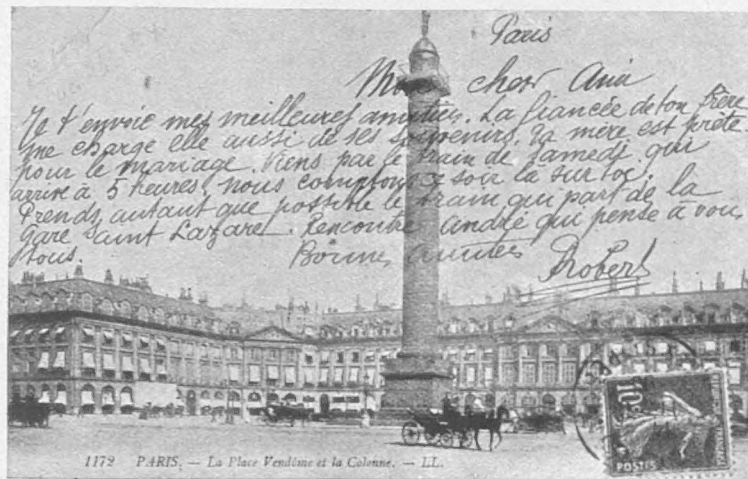 Paris
Mon cher Ami
Je t'envoie mes meilleures amitiés. La fiancée de ton frère
me charge elle aussi de ses souvenirs. Ta mère est prête
pour le mariage. Viens par le train de samedi qui
arrive à 5 heures, nous comptons ce soir là sur toi.
Prends autant que possible le train qui part de la
gare Saint Lazaret. Rencontré andré qui pense à vous
tous.
Bonnes amitiés
Robert
10c
POSTES
1172 PARIS. — La Place Vendôme et la Colonne. — LL.